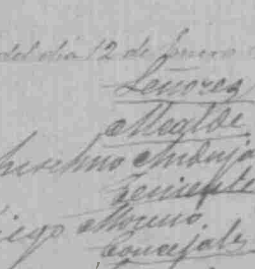 del dia 12 de Enero
Señores
Alcalde
Andujar
Teniente
Diego Moreno
Concejales